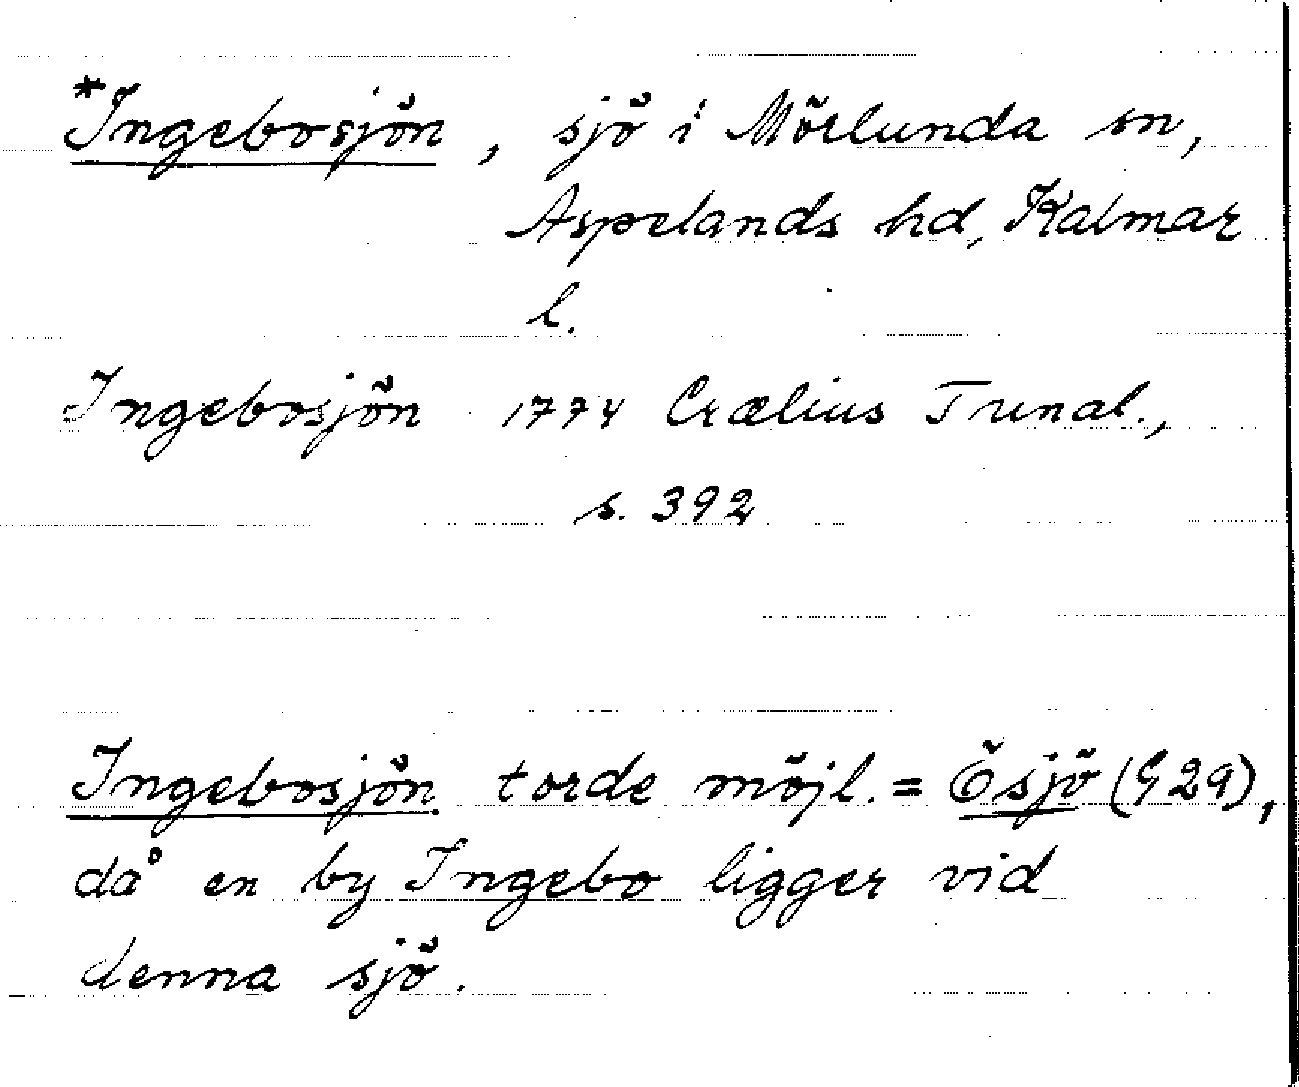 *Ingebosjön, sjö i Mörlunda sn,
Aspelands hd, Kalmar
l.
Ingebosjön 1774 Crælius Tunal.,
s. 392
Ingebosjön torde möjl. = Ösjö (G29),
då en by Ingebo ligger vid
denna sjö.